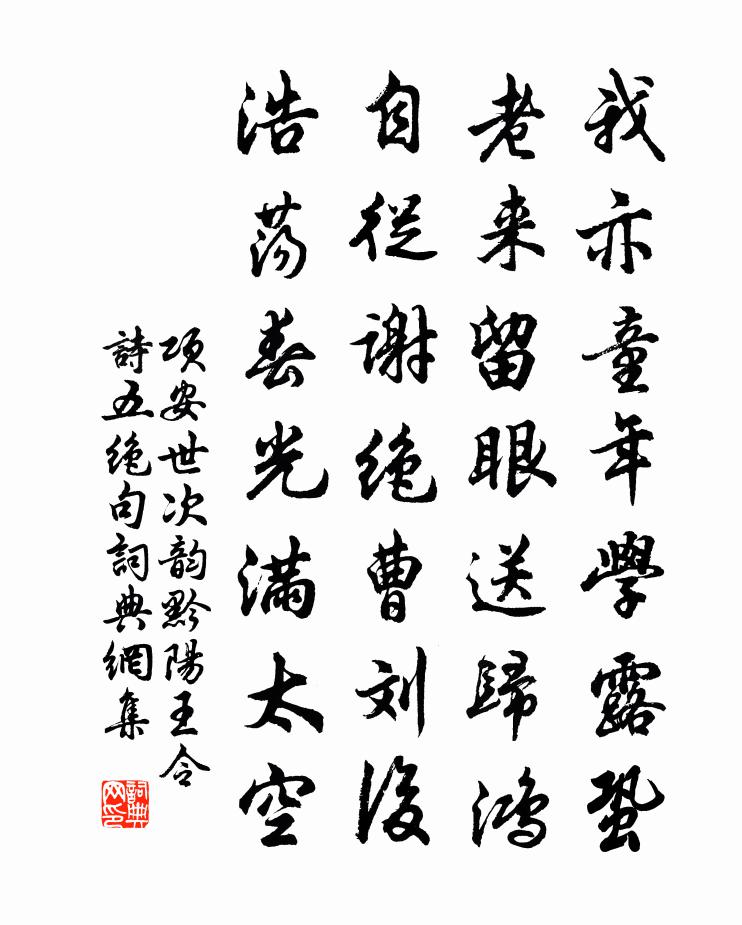 我亦童年學露蛩
老来留眼送歸鴻
自從谢绝曹刘後
浩荡春光满太空
项安世次韵黔陽王令
詩五绝句詞典網集
詞典網印